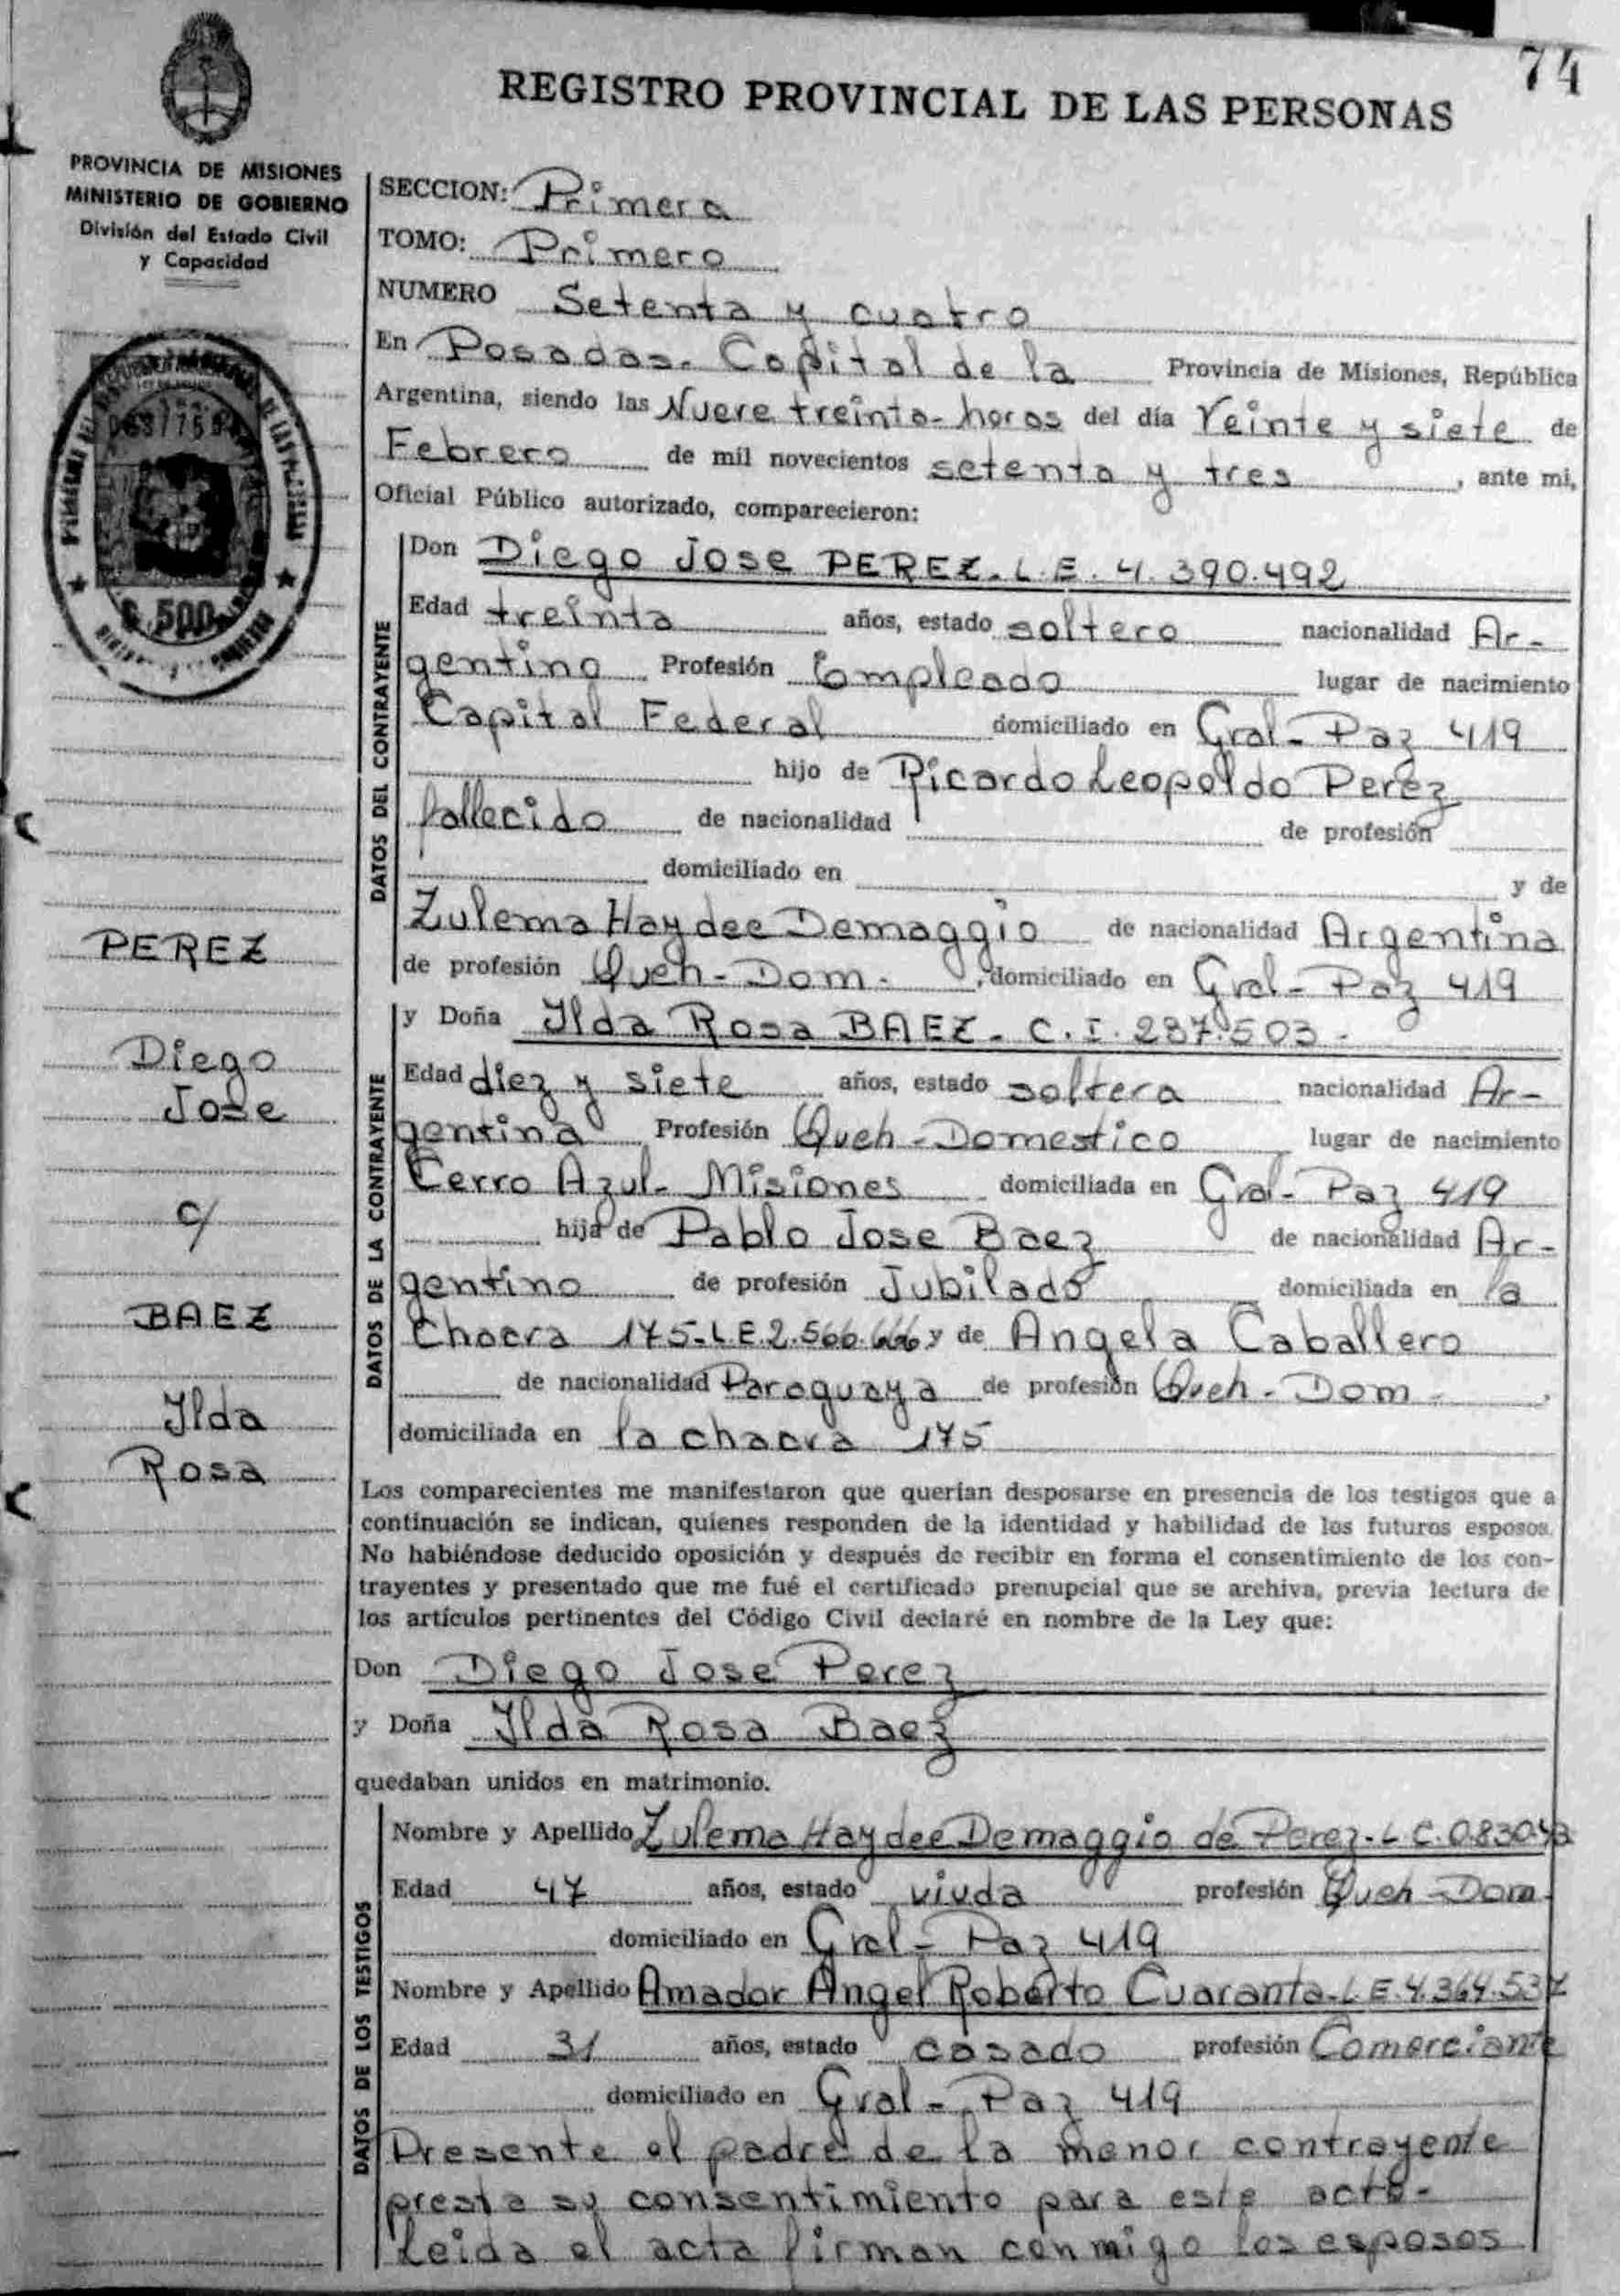 74
REGISTRO PROVINCIAL DE LAS PERSONAS
PROVINCIA DE MISIONES
MINISTERIO DE GOBIERNO
División del Estado Civil
y Capacidad
SECCION: Primera
TOMO: Primero
NUMERO Setenta y cuatro
En Posadas. Capital de la Provincia de Misiones, República
Argentina, siendo las Nueve treinta horas del día Veinte y siete de
Febrero de mil novecientos setenta y tres, ante mi,
Oficial Público autorizado, comparecieron:
DATOS DEL CONTRAYENTE
Don Diego Jose PEREZ. L.E. 4.390.492
Edad treinta años, estado soltero nacionalidad Ar-
gentino Profesión Empleado lugar de nacimiento
Capital Federal domiciliado en Gral- Paz 419
hijo de Ricardo Leopoldo Perez
fallecido de nacionalidad de profesión
domiciliado en y de
Zulema Haydee Demaggio de nacionalidad Argentina
de profesión Queh-Dom. , domiciliado en Gral- Paz 419
DATOS DE LA CONTRAYENTE
y Doña Ilda Rosa BAEZ - C.I. 287.503 -
Edad diez y siete años, estado soltera nacionalidad Ar-
gentina Profesión Queh-Domestico lugar de nacimiento
Cerro Azul- Misiones domiciliada en Gral- Paz 419
hija de Pablo Jose Baez de nacionalidad Ar-
gentino de profesión Jubilado domiciliada en la
Chacra 175-L.E.2.566. y de Angela Caballero
de nacionalidad Paraguaya de profesión Queh-Dom- ,
domiciliada en la chacra 175
Los comparecientes me manifestaron que querían desposarse en presencia de los testigos que a
continuación se indican, quienes responden de la identidad y habilidad de los futuros esposos.
No habiéndose deducido oposición y después de recibir en forma el consentimiento de los con-
trayentes y presentado que me fué el certificado prenupcial que se archiva, previa lectura de
los artículos pertinentes del Código Civil declaré en nombre de la Ley que:
Don Diego Jose Perez
y Doña Ilda Rosa Baez
quedaban unidos en matrimonio.
DATOS DE LOS TESTIGOS
Nombre y Apellido Zulema Haydee Demaggio de Perez-L.C.
Edad 47 años, estado viuda profesión Queh-Dom.
domiciliado en Gral- Paz 419
Nombre y Apellido Amador Angel Roberto Cuaranta-L.E.4.364.537
Edad 31 años, estado casado profesión Comerciante
domiciliado en Gral- Paz 419
Presente el padre de la menor contrayente
presta su consentimiento para este acto-
Leida el acta firman conmigo los esposos
$.500
PEREZ
Diego
Jose
c/
BAEZ
Ilda
Rosa